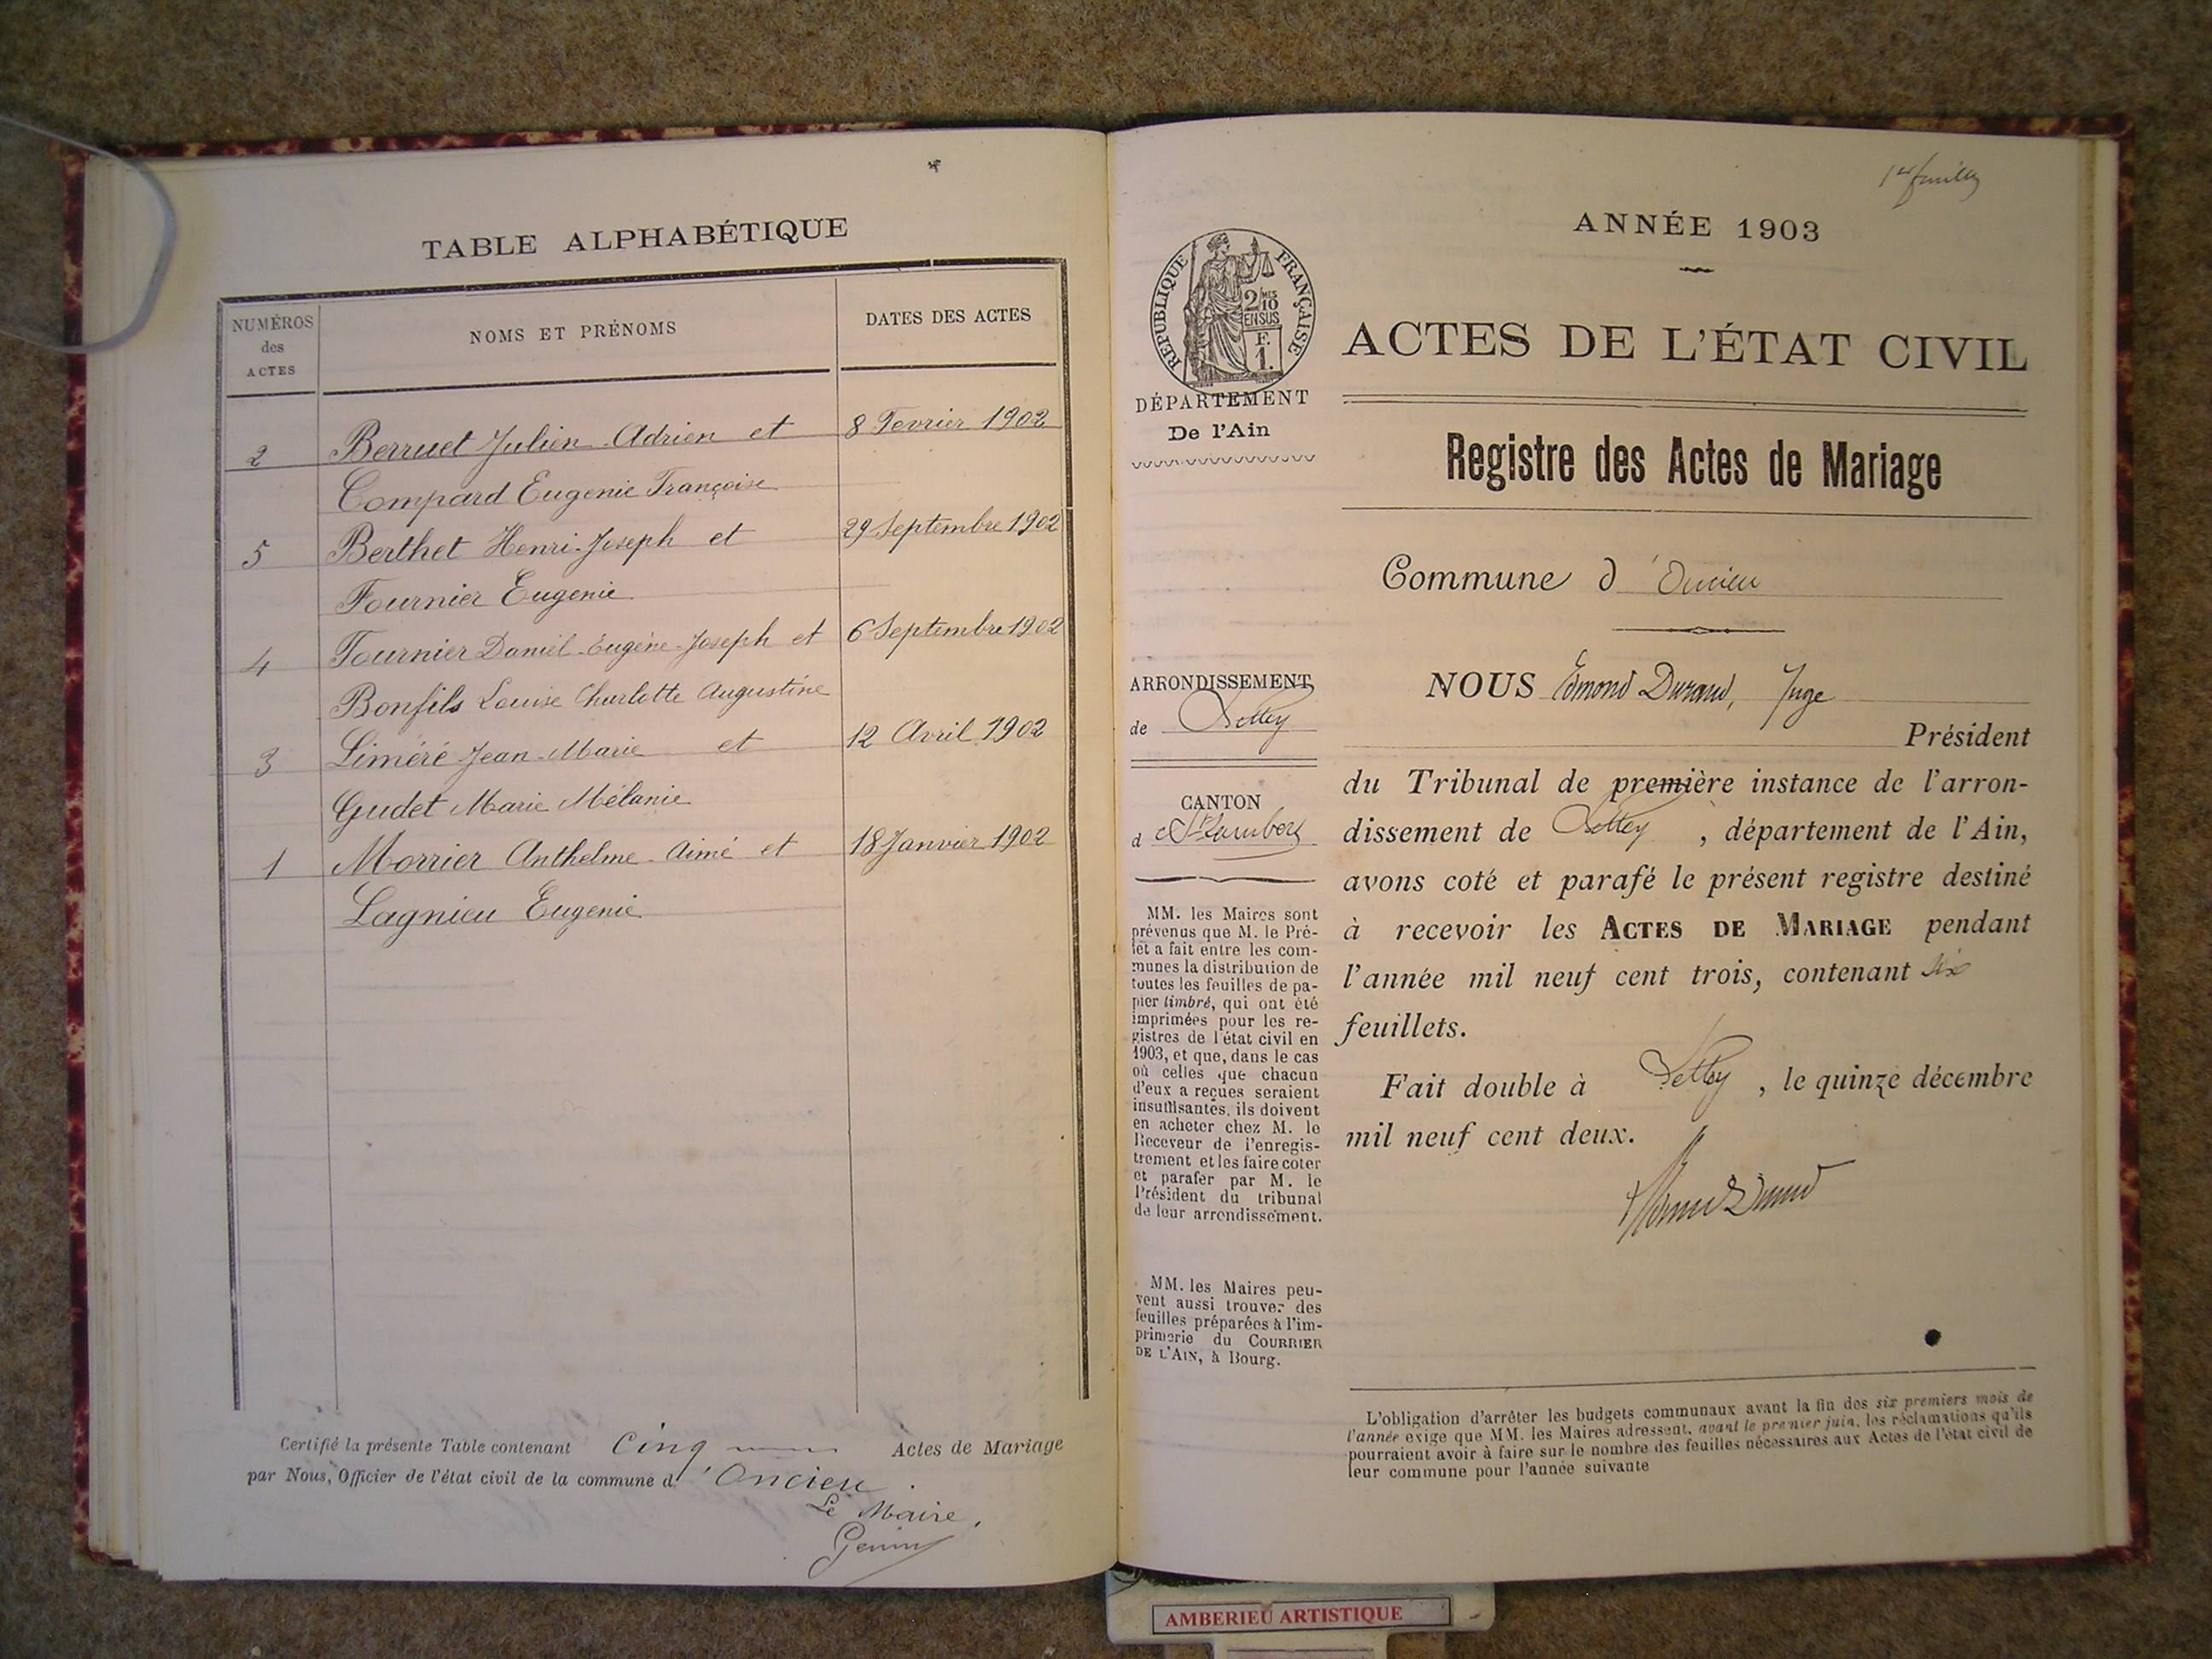 TABLE ALPHABÉTIQUE
NUMÉROS
des
ACTES
NOMS ET PRÉNOMS
DATES DES ACTES
2 Berruet Julien-Adrien et 8 Fevrier 1902
Compard Eugenie Françoise
5 Berthet Henri-Joseph et 29 Septembre 1902
Fournier Eugenie
4 Fournier Daniel-Eugène-Joseph et 6 Septembre 1902
Bonfils Louise Charlotte Augustine
3 Liméré Jean-Marie et 12 Avril 1902
Gudet Marie Mélanie
1 Morrier Anthelme-Aimé et 18 Janvier 1902
Lagnieu Eugenie
Certifié la présente Table contenant Cinq Actes de Mariage
par Nous, Officier de l'état civil de la commune d'Oncieu.
Le Maire,
Genin
1er feuillet
RÉPUBLIQUE FRANÇAISE
2/MES
10
EN SUS
F.
1.
DÉPARTEMENT
De l'Ain
ARRONDISSEMENT
de Belley
CANTON
d St Rambert
MM. les Maires sont
prévenus que M. le Pré-
fet a fait entre les com-
munes la distribution de
toutes les feuilles de pa-
pier timbré, qui ont été
imprimées pour les re-
gistres de l'état civil en
1903, et que, dans le cas
où celles que chacun
d'eux a reçues seraient
insuffisantes, ils doivent
en acheter chez M. le
Receveur de l'enregis-
trement et les faire coter
et parafer par M. le
Président du tribunal
de leur arrondissement.
MM. les Maires peu-
vent aussi trouver des
feuilles préparées à l'im-
primerie du COURRIER
DE L'AIN, à Bourg.
ANNÉE 1903
ACTES DE L'ÉTAT CIVIL
Registre des Actes de Mariage
Commune d'Oncieu
NOUS Edmond Durand, Juge
Président
du Tribunal de première instance de l'arron-
dissement de Belley, département de l'Ain,
avons coté et parafé le présent registre destiné
à recevoir les ACTES DE MARIAGE pendant
l'année mil neuf cent trois, contenant six
feuillets.
Fait double à Belley, le quinze décembre
mil neuf cent deux.
Edmond Durand
L'obligation d'arrêter les budgets communaux avant la fin des six premiers mois de
l'année exige que MM. les Maires adressent, avant le premier juin, les réclamations qu'ils
pourraient avoir à faire sur le nombre des feuilles nécessaires aux Actes de l'état civil de
leur commune pour l'année suivante
AMBERIEU ARTISTIQUE